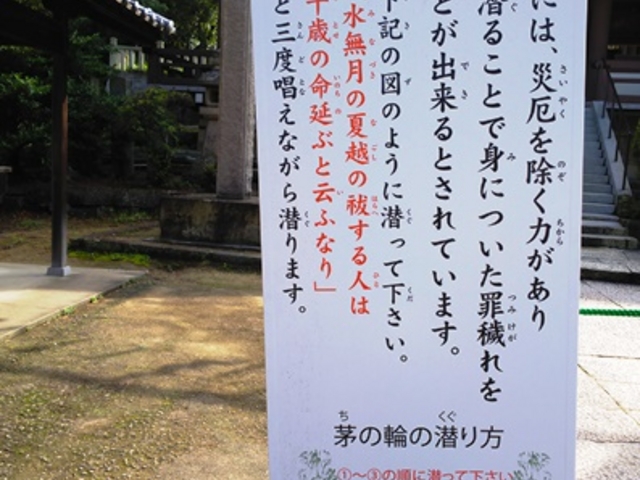 には、災厄を除く力があり
潜ることで身についた罪穢れを
とが出来るとされています。
下記の図のように潜って下さい。
水無月の夏越の祓する人は
千歳の命延ぶと云ふなり」
と三度唱えながら潜ります。
茅の輪の潜り方
①〜③の順に潜って下さい